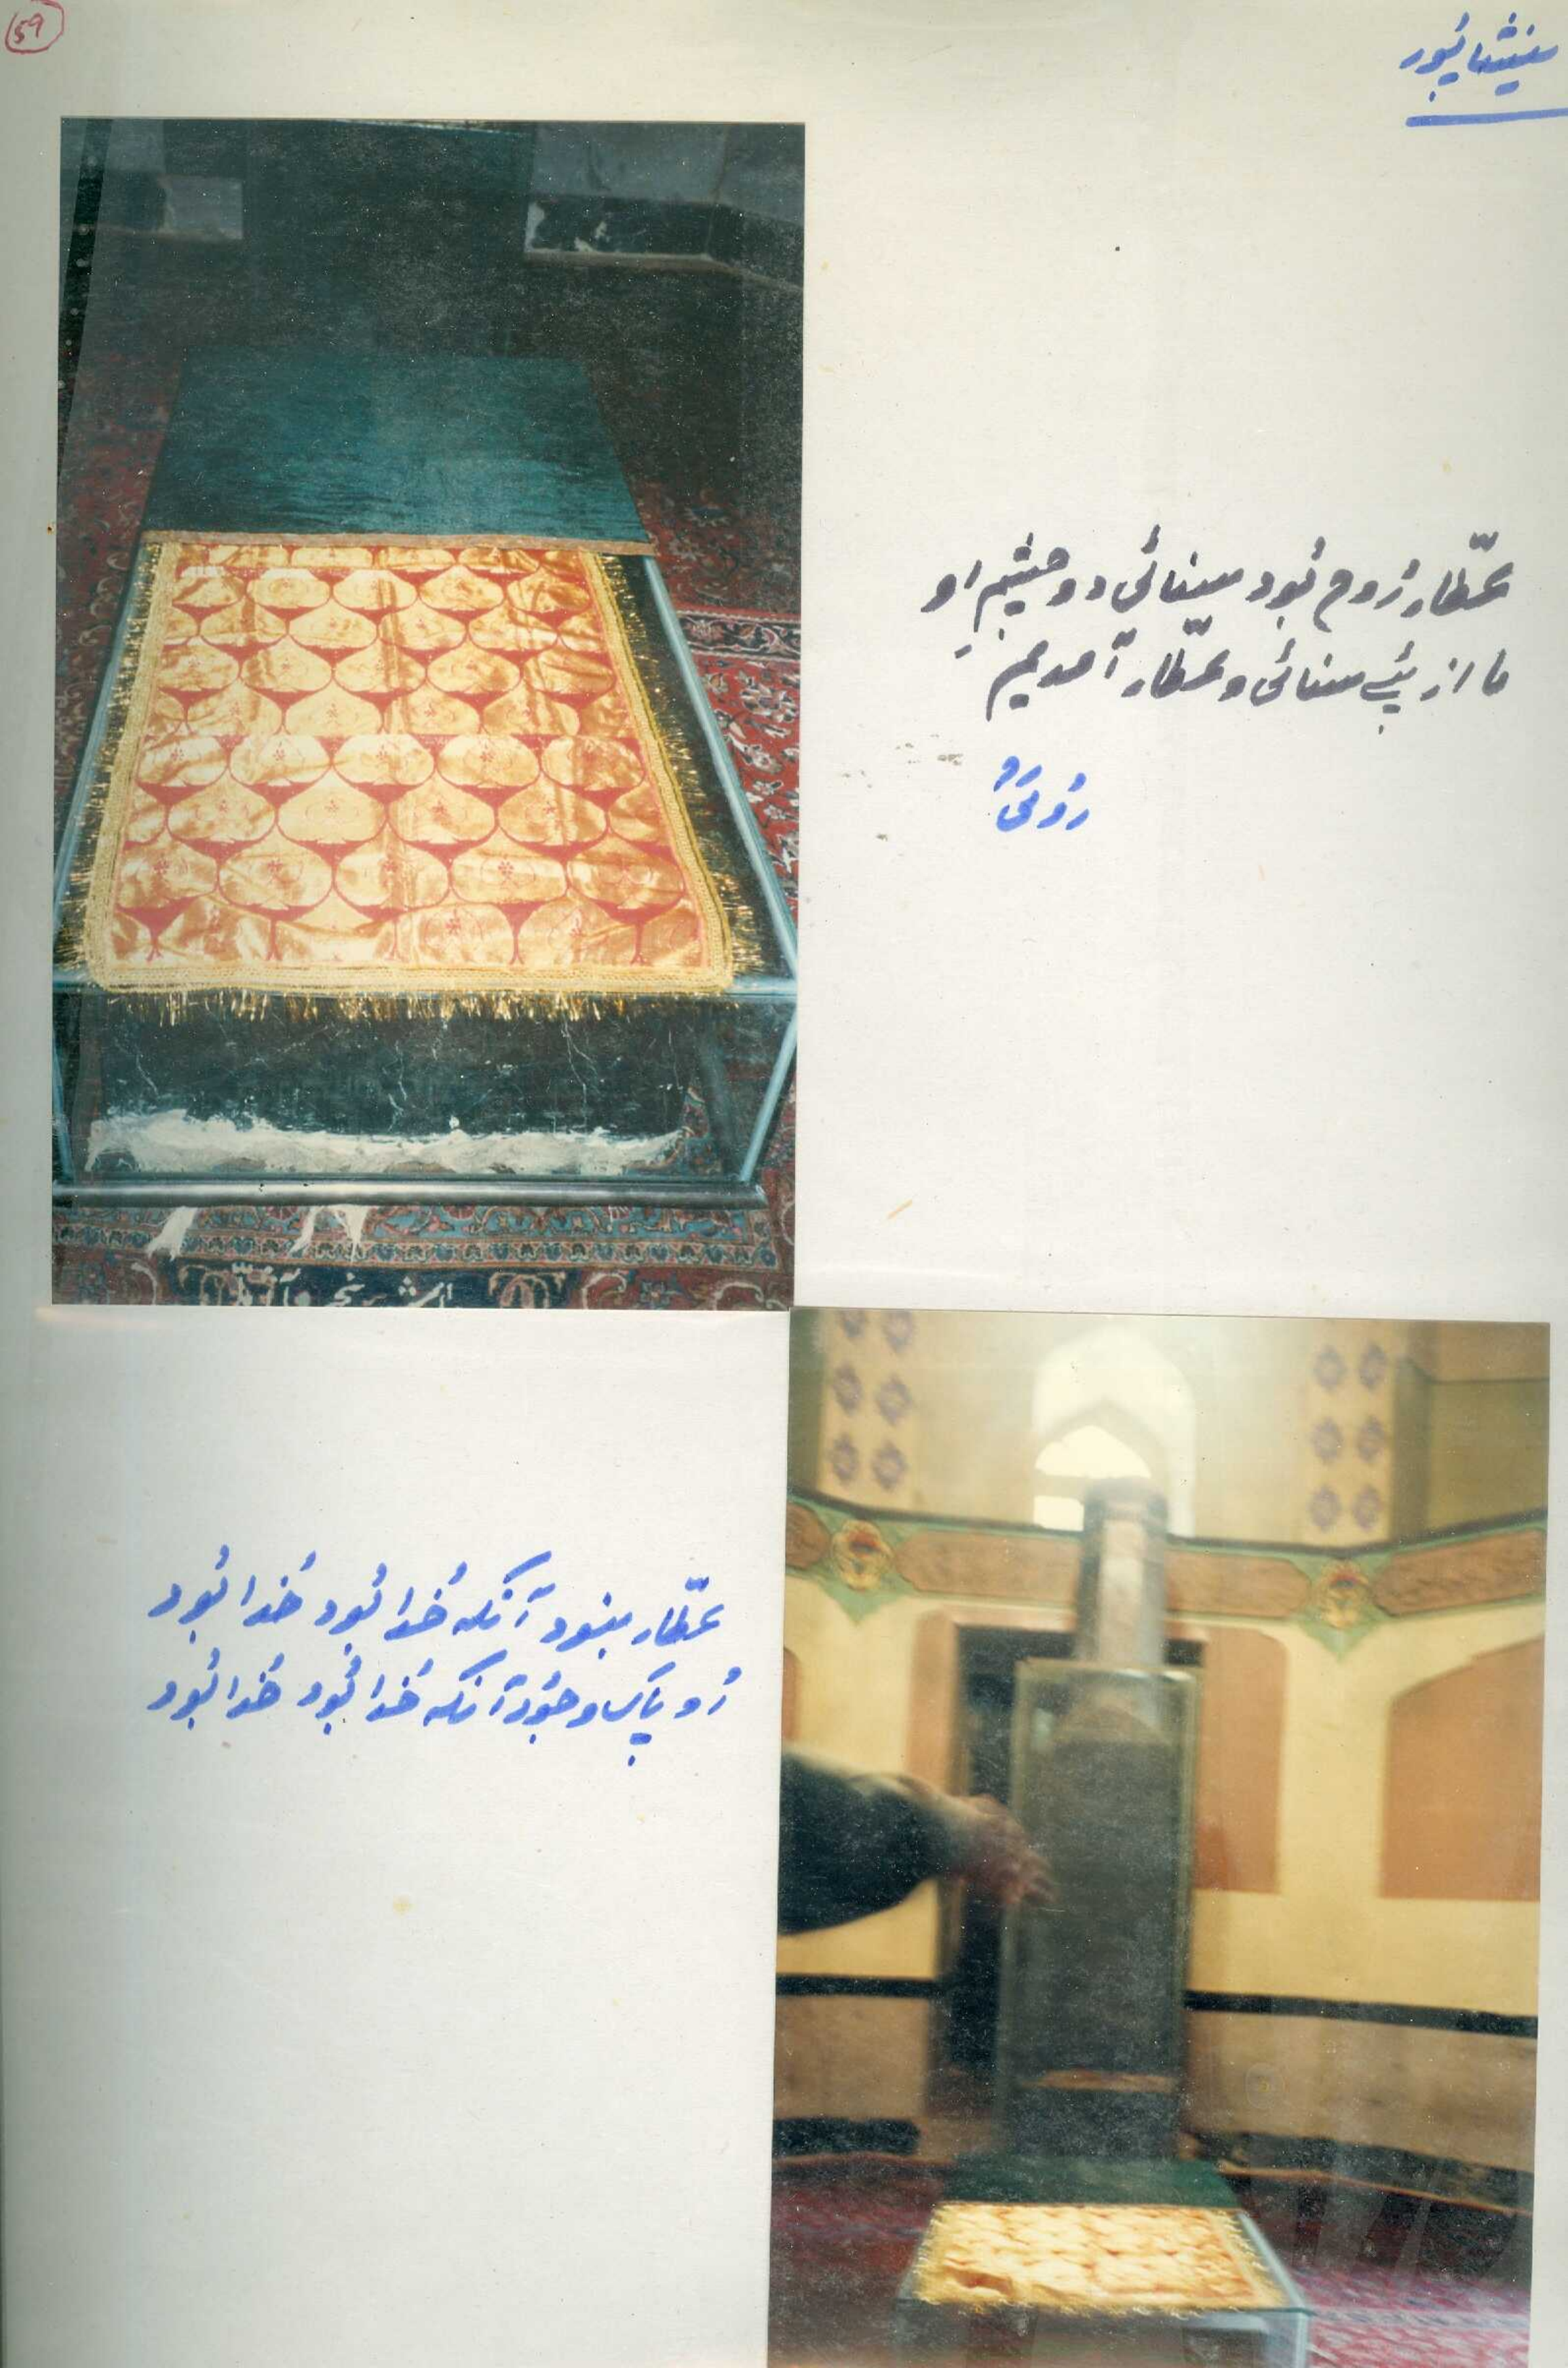 59
نیشاپور
عطّار رُوح بُود سنائی دو چشمِ او
ما از پئے سنائی و عطّار آمدیم
رُومیؒ
عطّار نبود آنکہ خُدا بُود خُدا بُود
زو پاک وجُود آنکہ خُدا بُود خُدا بُود